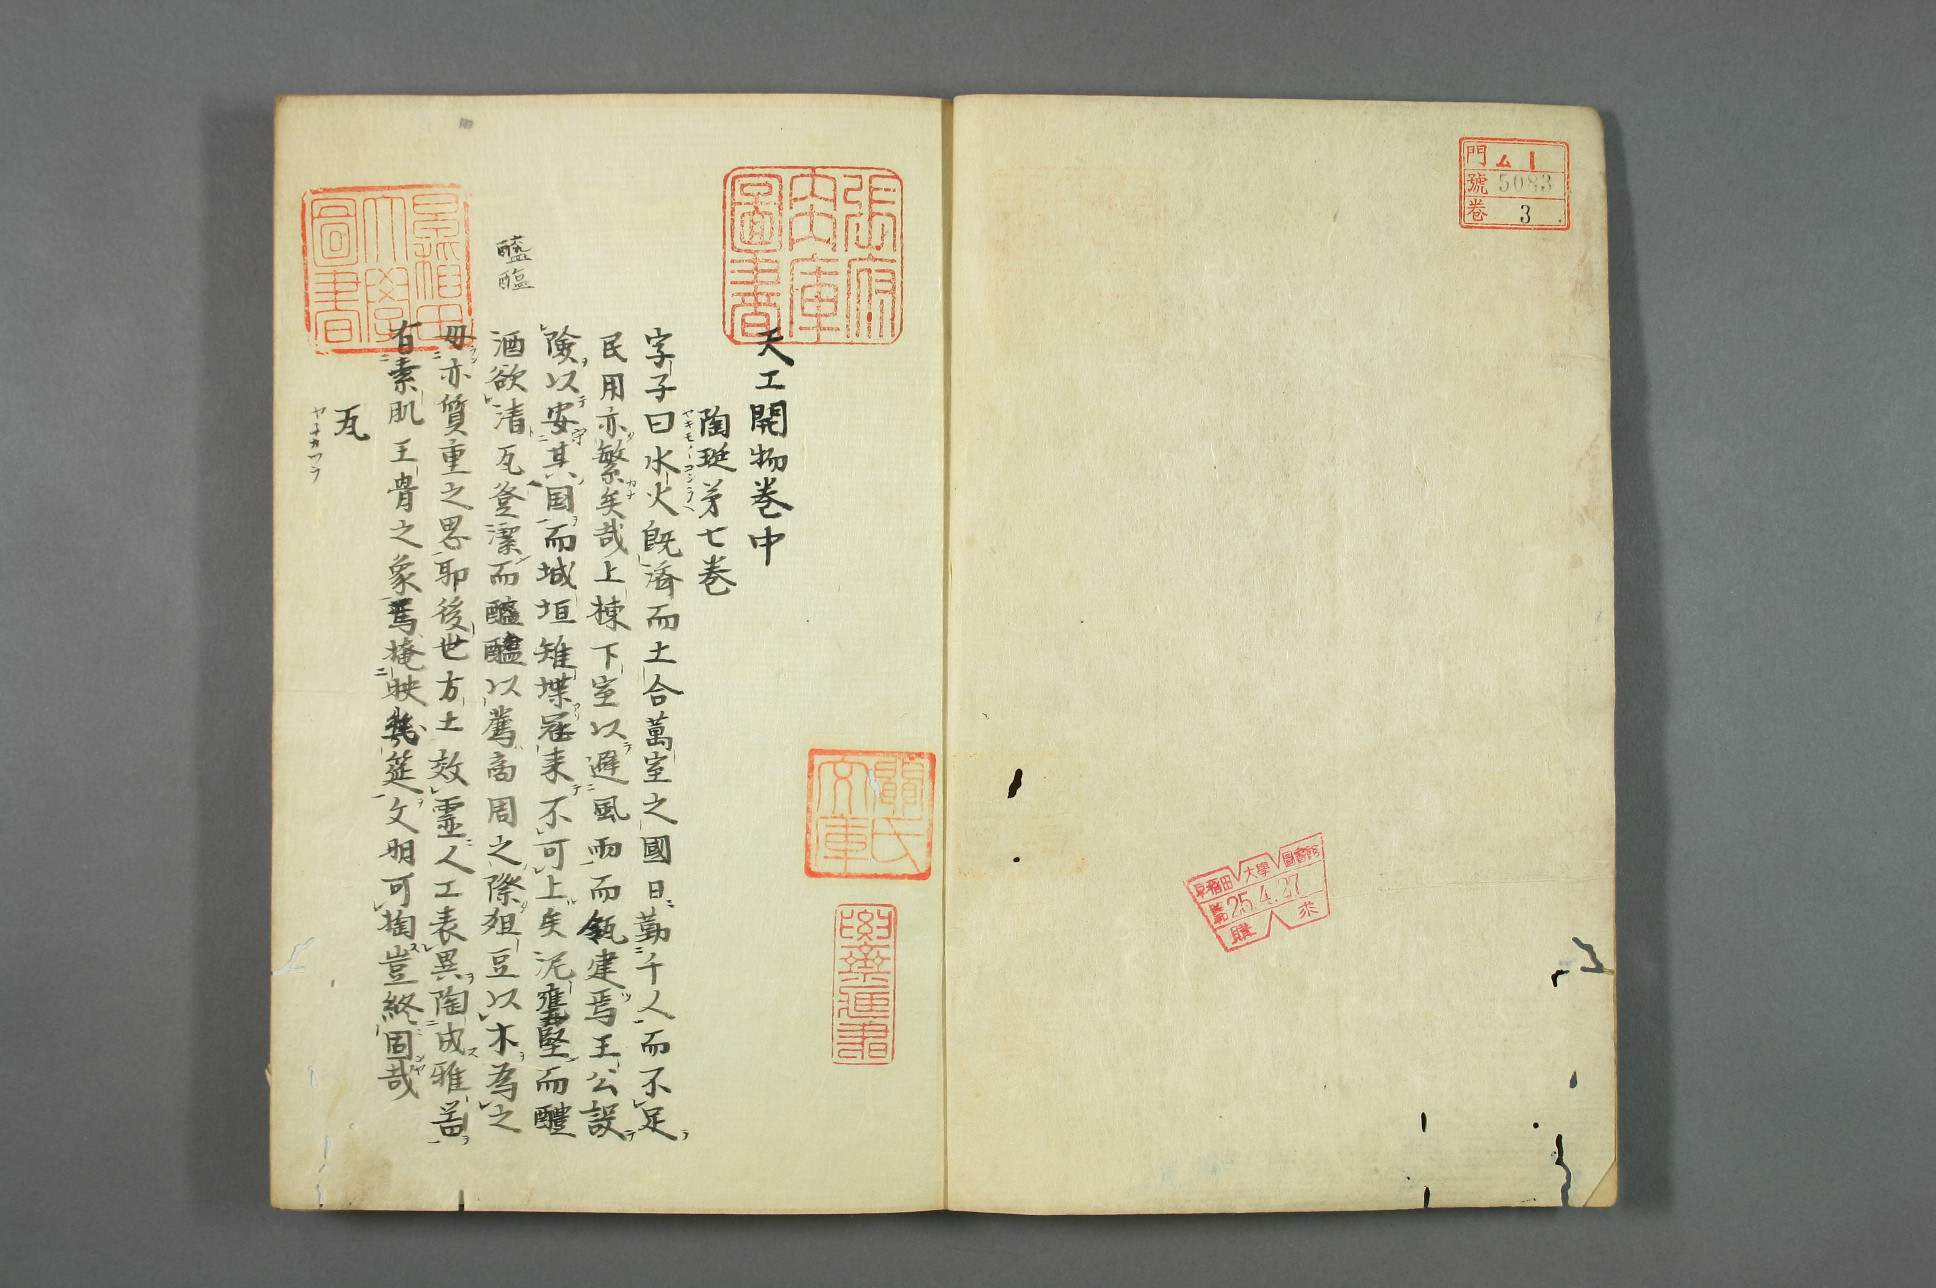 門 ム1
號 5083
卷 3
早稲田大學圖書館
25.4.27
購求
張府
内庫
圖書
關氏
文庫
天工開物巻中
陶埏苐七巻
ヤキモノコシラヘ
字子曰水火既濟而土合萬室之國日勤千人而不足
民用亦繁矣哉上棟下室以避風雨而瓴建焉王公設
險以安其国而城垣雉堞寇来不可上矣泥甕堅而醴
酒欲清瓦登潔而醯醢以薦商周之際俎豆以木為之
毋亦質重之思耶後世方土效靈人工表異陶成雅噐
有素肌玉骨之象焉掩映几筵文明可掬豈終固哉
瓦
早稲田
大學
圖書